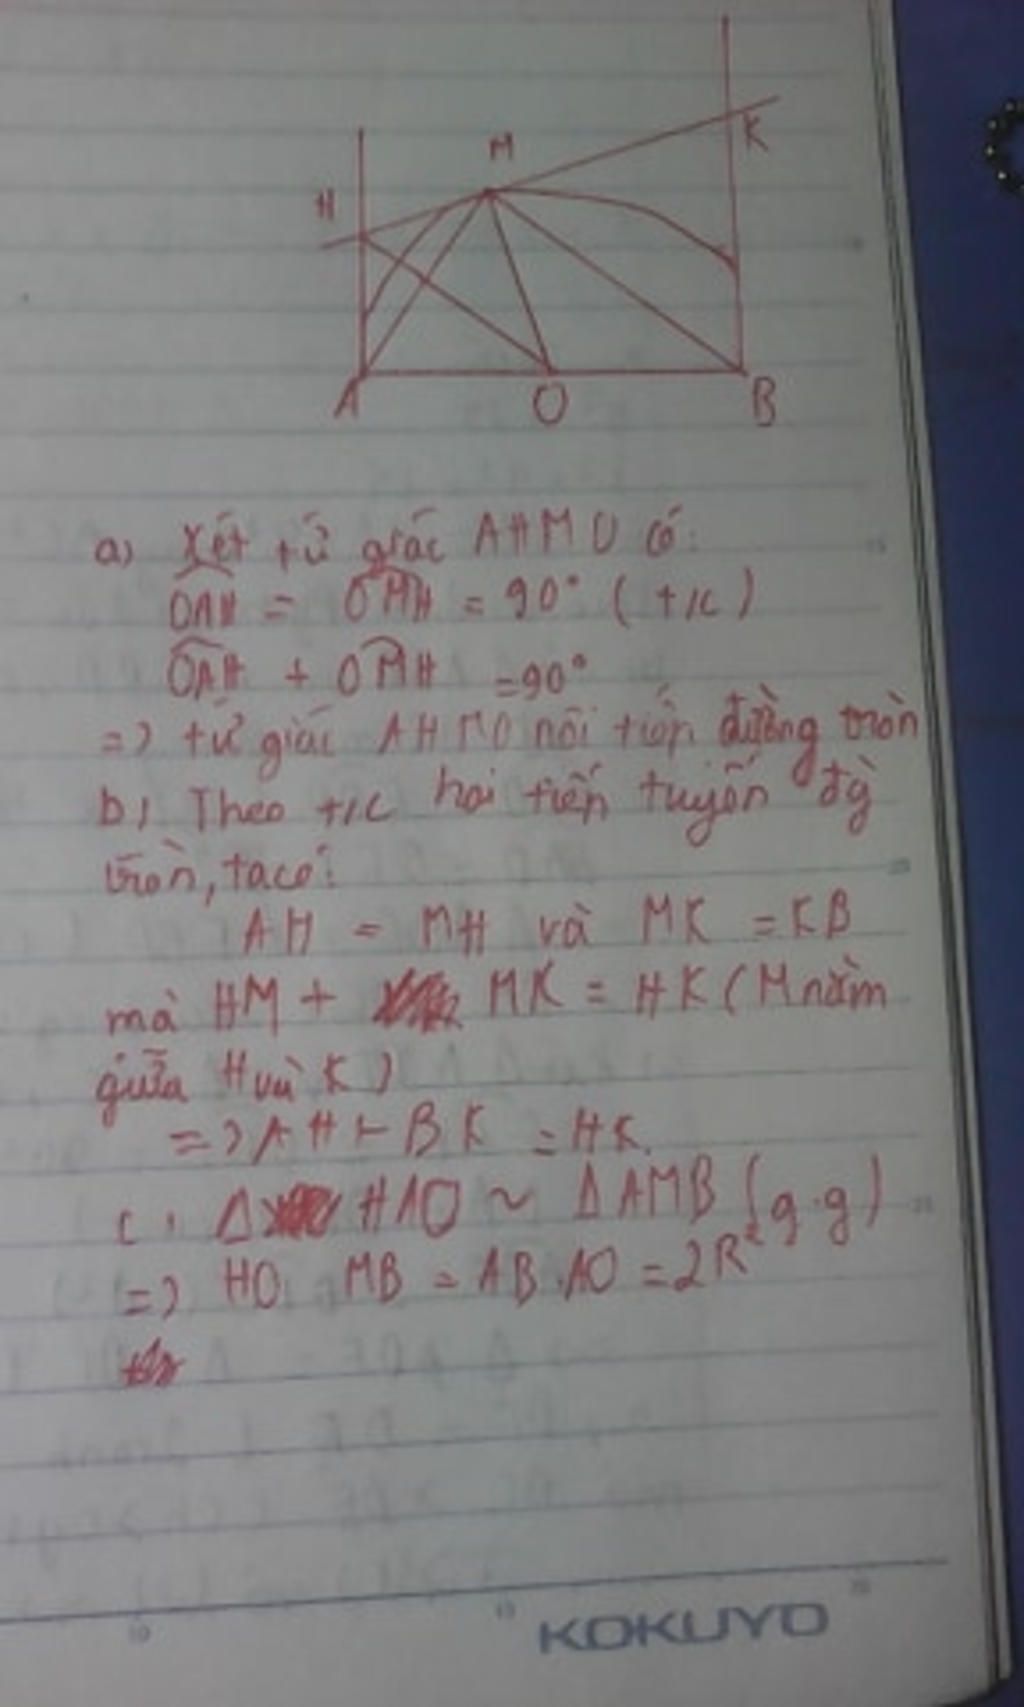 M
K
H
A O B
a) Xét tứ giác AHMO có:
OAH = OMH = 90° (t/c)
OAH + OMH = 90°
=> tứ giác AHMO nội tiếp đường tròn
b) Theo t/c hai tiếp tuyến đg
tròn, ta có:
AH = MH và MK = KB
mà HM + MK = HK (M nằm
giữa H và K)
=> AH + BK = HK.
c) Δ HAO ~ Δ AMB (g.g)
=> HO. MB = AB.AO = 2R²
10 15 20
KOKUYO